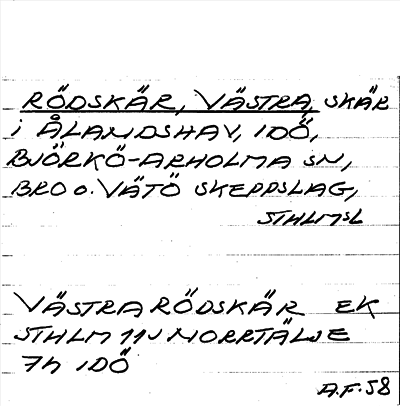 RÖDSKÄR, VÄSTRA, SKÄR
i ÅLANDSHAV, IDÖ,
BJÖRKÖ-ARHOLMA SN,
BRO o. VÄTÖ SKEPPSLAG,
STHLMSL
VÄSTRA RÖDSKÄR EK
STHLM 11J NORRTÄLJE
7h IDÖ
A.F. 58